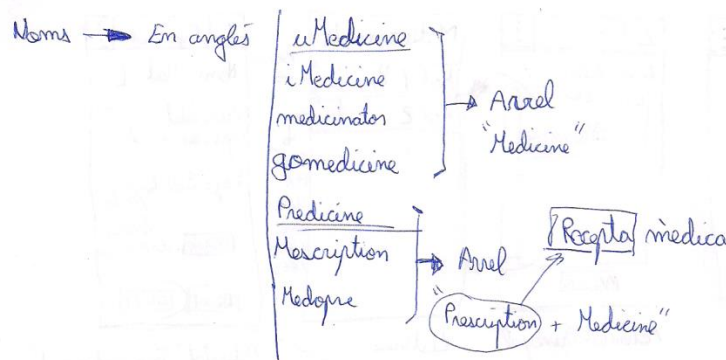 Noms → En anglès
uMedicine
iMedicine
medicinator
gomedicine
→ Arrel
"Medicine"
Predicine
Mescription
Medopre
→ Arrel
"Prescription + Medicine"
Recepta mèdica